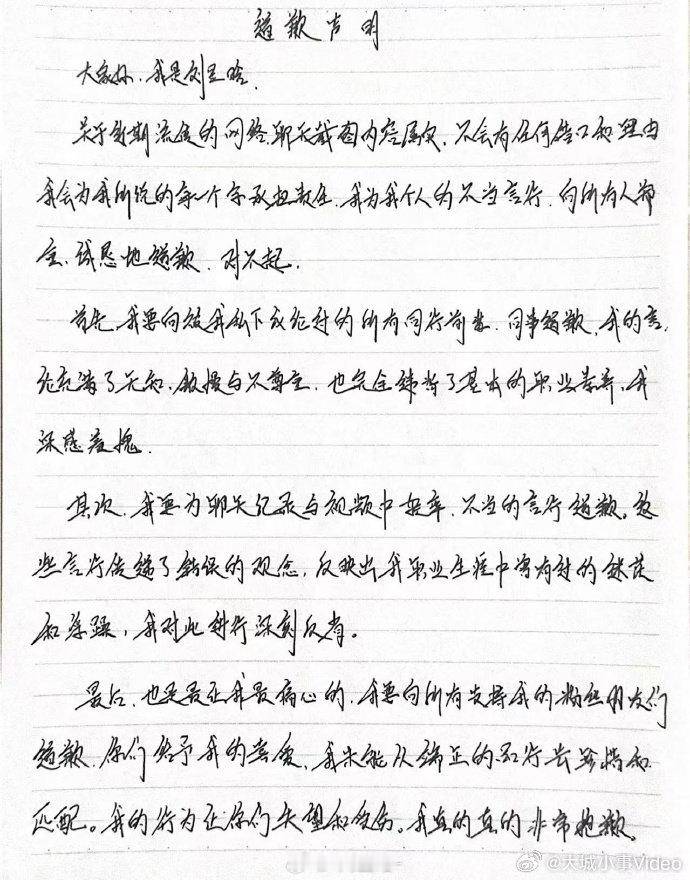 道歉声明
大家好，我是刘昱晗.
关于近期流传的网络聊天截图内容属实，不会有任何借口和理由
我会为我所说的每一个字承担责任.我为我个人的不当言行.向所有人郑
重、诚恳地道歉.对不起.
首先.我要向被我私下议论过的所有同行前辈、同事道歉.我的言
论充满了无知、傲慢与不尊重.也完全违背了基本的职业素养.我
深感羞愧.
其次.我要为聊天记录与视频中轻率、不当的言行道歉。这
些言行传递了错误的观念，反映出我职业生涯中曾有过的迷茫
和浮躁，我对此进行深刻反省。
最后.也是最让我最痛心的.我要向所有支持我的粉丝朋友们
道歉.你们给予我的喜爱，我未能从端正的品行去珍惜和
匹配。我的行为让你们失望和受伤。我真的真的非常抱歉.
@天城小事Video